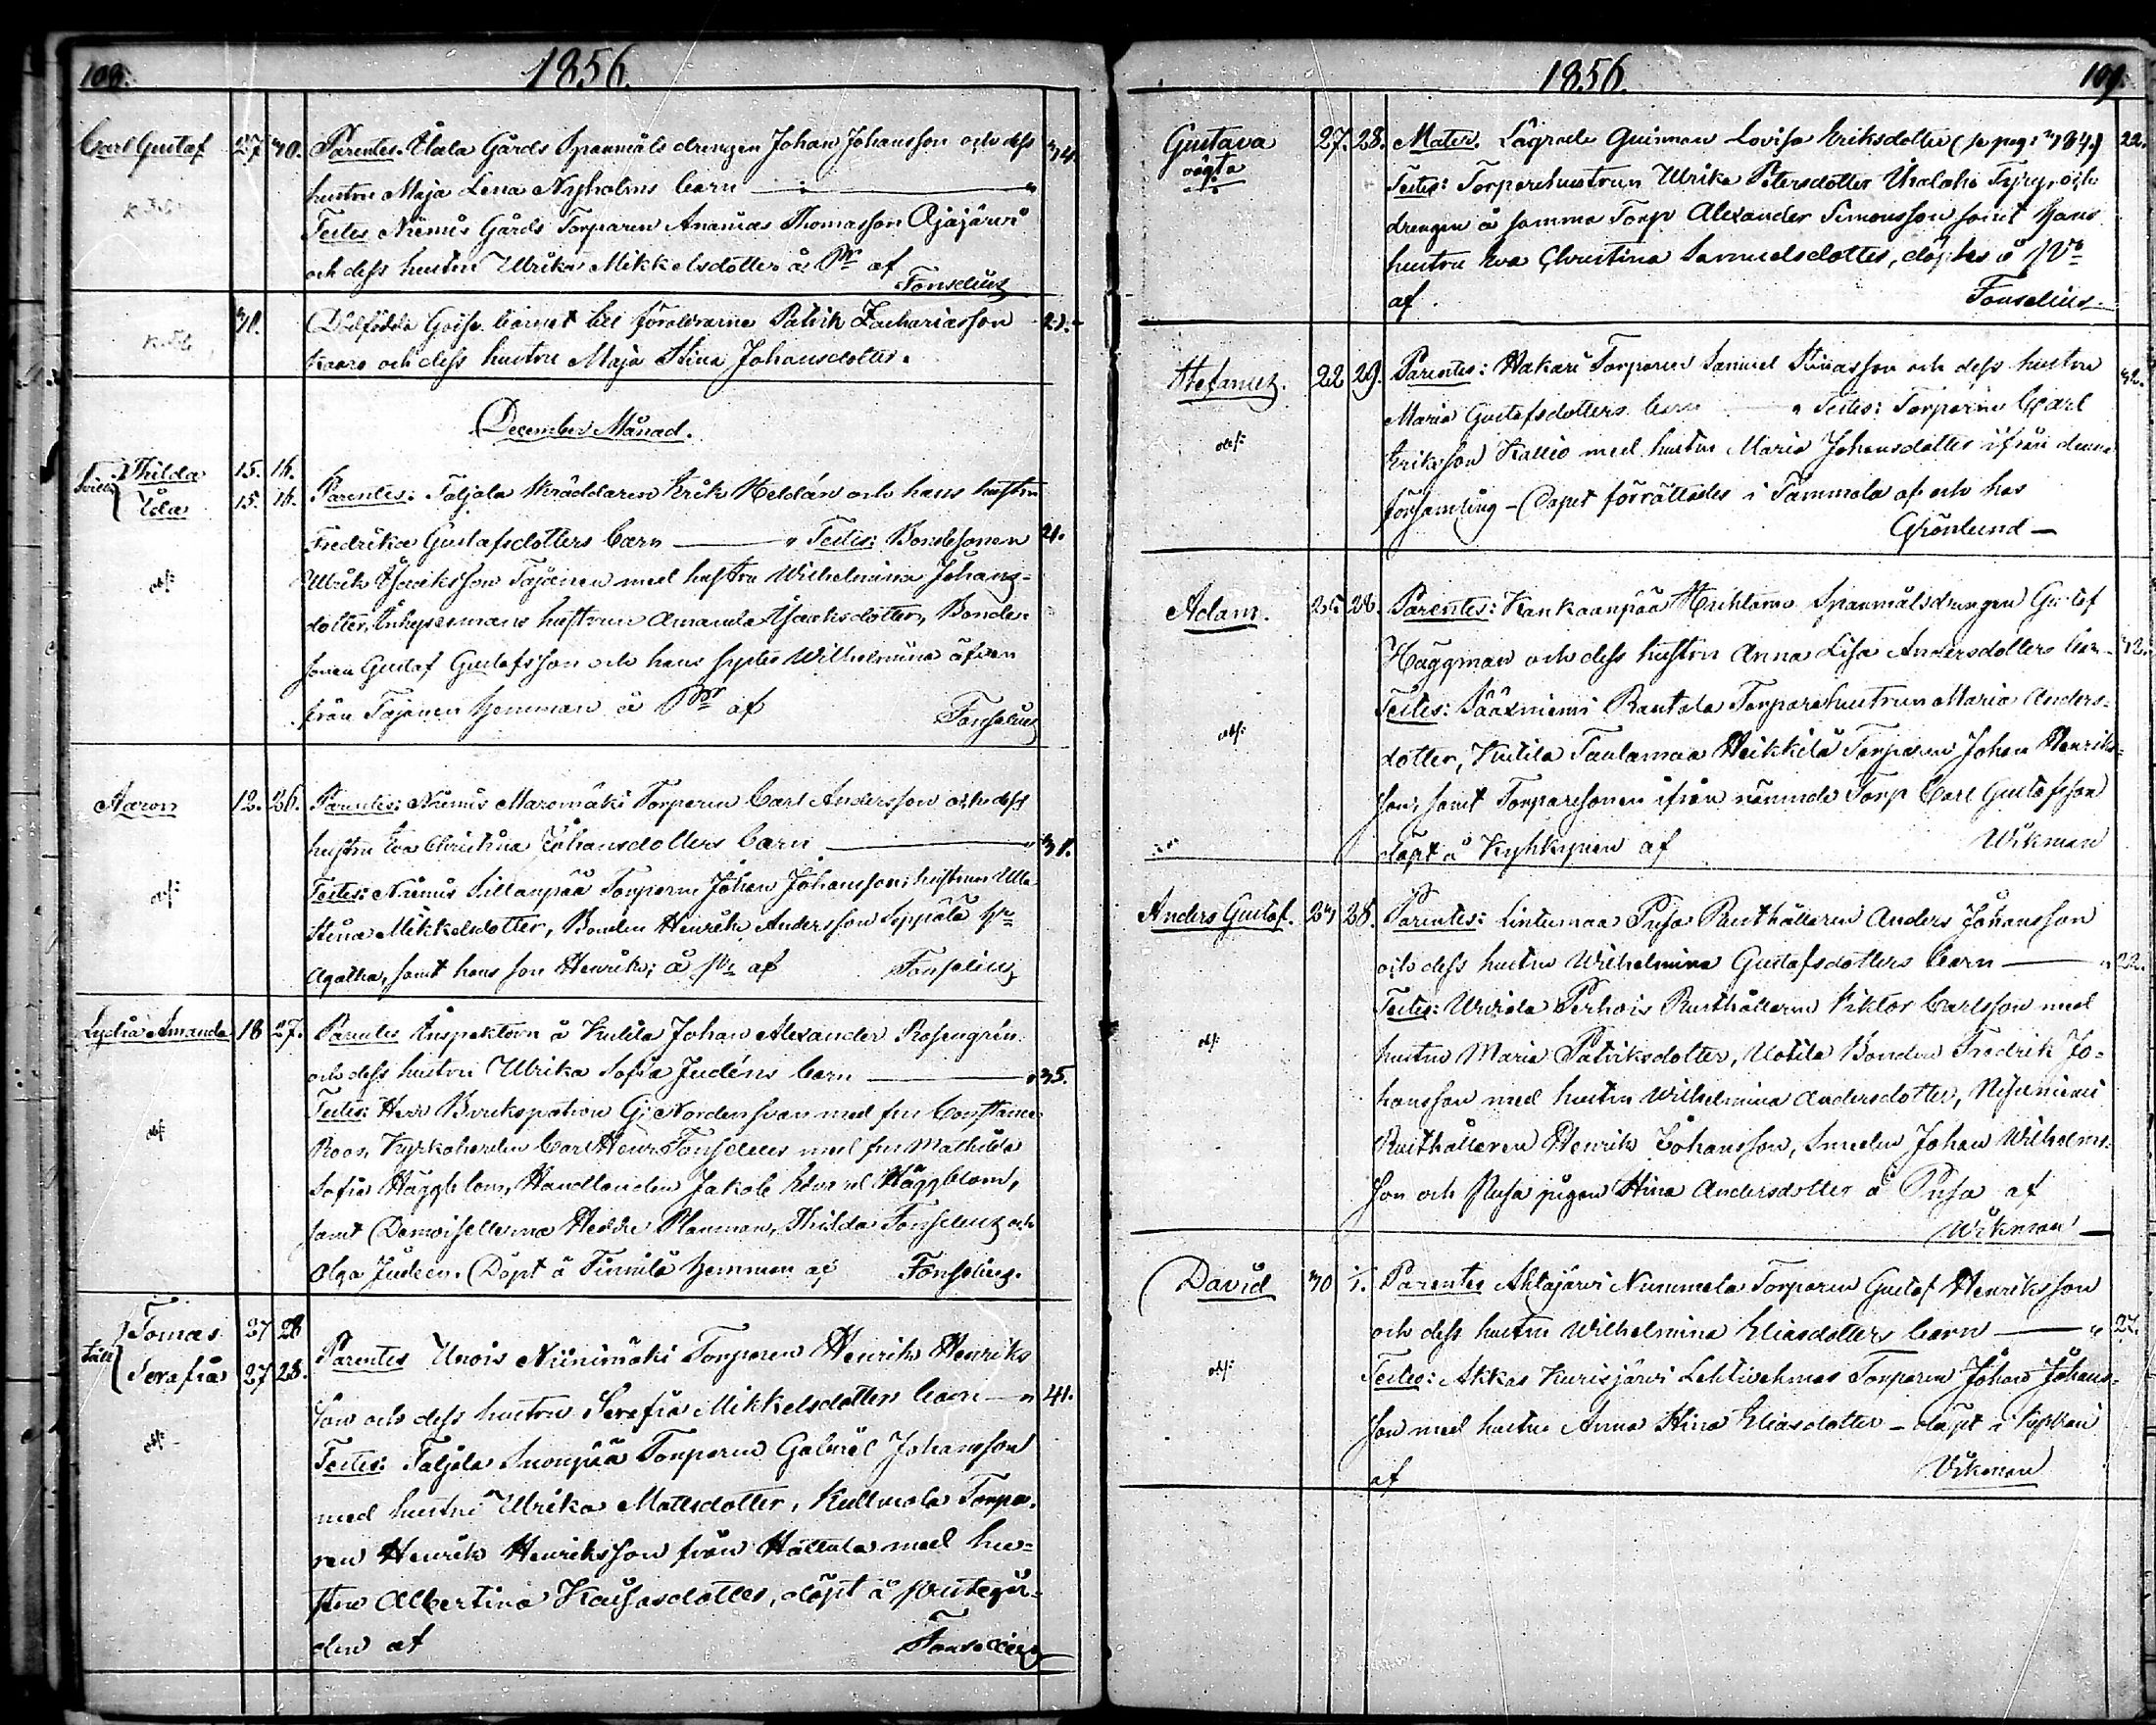 108.
1856.
Carl Gustaf 27 30. Parentes. Utala Gårds Spanmåls drengen Johan Johansson och dess 34.
hustru Maja Lena Nyholms barn
Testes Niemis Gårds Torparen Ananias Thomasson Ojajärvi
och dess hustru Ulrika Mikkelsdotter å Pr af
Fonselius
31. Dödfödda Gosse barnet till föräldrarna Patrik Zachariasson 29.
Kaaro och dess hustru Maja Stina Johansdotter.
December Månad.
Thilda 15. 16.
Ida 15. 16. Parentes: Taljala Skräddaren Erik Heldán och hans hustru
Fredrika Gustafsdotters barn Testes: Bondesonen 21.
Ulrik Isaaksson Tajanen med hustru Wilhelmina Johans-
dotter, Inhysesmans hustrun Amanda Isaaksdotter, Bonde-
sonen Gustaf Gustafsson och hans syster Wilhelmina äfven
från Tajanen hemman å Pr af Fonselius
Aaron 12. 26. Parentes: Niemis Maromäki Torparen Carl Andersson och dess
hustru Eva Christina Johansdotters barn 31.
Testes: Niemis Sillanpää Torparen Johan Johansson, hustrun Ulla
Stina Mikkelsdotter, Bonden Henrik Andersson Seppälä
Agatha, samt hans son Henrik; å pr af Fonselius
Lydia Amanda 18 27. Parentes Inspektorn å Kutila Johan Alexander Rosengrén
och dess hustru Ulrika Sofia Judéns barn 35.
Testes: Herr Brukspatron G. Nordensvan med fru Constance
Roos, Kyrkoherden Carl Henr. Fonselius med fru Mathilda
Sofia Häggblom, Handlanden Jakob Edvard Häggblom,
samt Demoisellerna Hedda Planman, Thilda Fonselius och
Olga Judeen. Döpt å Finnilä hemman af Fonselius.
Tomas 27 28
Serafia 27 28. Parentes Urois Niinimäki Torparen Henrik Henriks
son och dess hustru Serafia Mikkelsdotters barn 41.
Testes: Taljala Suonpää Torparen Gabriel Johansson
med hustru Ulrika Mattsdotter, Kullmala Torpa-
ren Henrik Henriksson från Hattula med hu-
stru Albertina Kaisasdotter, döpt å prestegår-
den af Fonselius
1856.
109.
Gustava 27. 28. Mater. Lägrade Quinnan Lovisa Eriksdotter (se pag: 134.) 22.
oägta Testes: Torparehustrun Ulrika Petersdotter
drengen å samma Torp Alexander Simonsson samt hans
hustru Eva Christina Samuelsdotter, döptes å
af Fonselius
Stefanus. 22 29. Parentes: Hakari Torparen Samuel och dess hustru 32.
Maria Gustafsdotters barn Testes: Torparen Carl
Eriksson Kallio med hustru Maria Johansdotter ifrån denna
församling – Dopet förrättades i Tammela af och hos
Grönlund
Adam. 25 28. Parentes: Kankaanpää Spanmålsdrengen Gustaf
Häggman och dess hustru Anna Lisa Andersdotters barn 32.
Testes: Sääxniemi Rantala Torparehustrun Maria Anders-
dotter, Kutila Taulamaa Heikkilä Torparen Johan Henriks-
son, samt Torparesonen ifrån nämnde Torp Carl Gustafsson
döpt å af Wikman
Anders Gustaf. 23 28. Parentes: Lintumaa Pusa Rusthållaren Anders Johansson
och dess hustru Wilhelmina Gustafsdotters barn 22.
Testes: Urviala Perhois Rusthållaren Viktor Carlsson med
hustru Maria Patriksdotter, Uotila Bonden Fredrik Jo-
hansson med hustru Wilhelmina Andersdotter,
Rusthållaren Henrik Johansson, Smeden Johan Wilhelms-
son och Pusa pigan Stina Andersdotter å Pusa af
Wikman
David 30 1. Parentes Ahtajärvi Nummela Torparen Gustaf Henriksson
och dess hustru Wilhelmina Eliasdotters barn 27.
Testes: Akkas Kurisjärvi Torparen Johan Johans-
son med hustru Anna Stina Eliasdotter – döpt i kyrkan
af Wikman